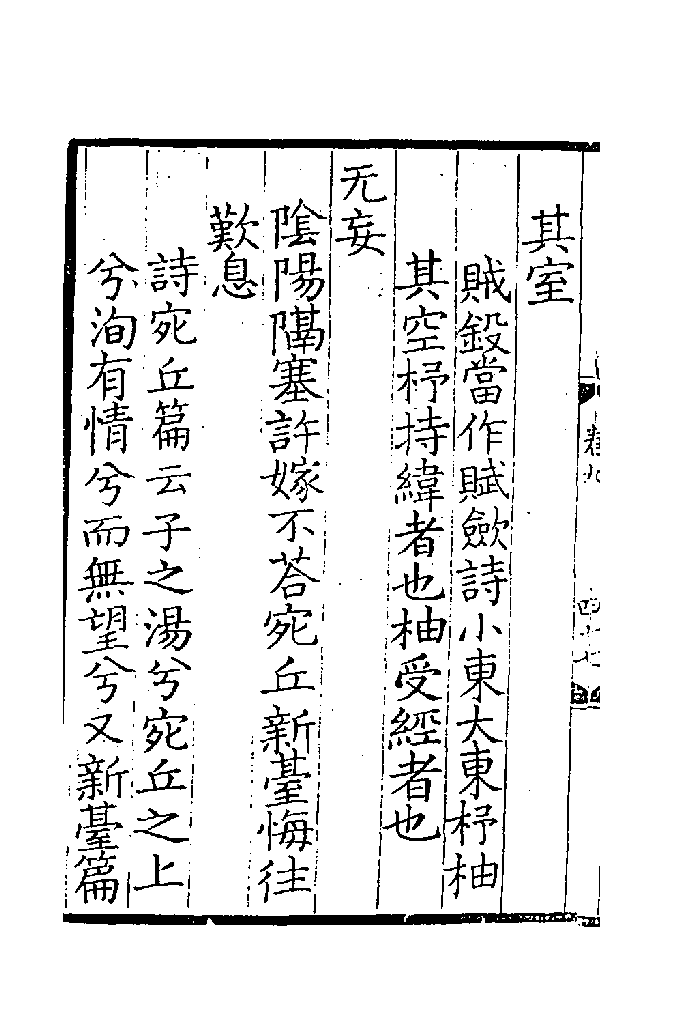 其室
賊鈠當作賦歛詩小東大東杼柚
其空杼持緯者也柚受經者也
无妄
陰陽隔塞許嫁不荅宛丘新臺悔往
歎息
詩宛丘篇云子之湯兮宛丘之上
兮洵有情兮而無望兮又新臺篇
卷九